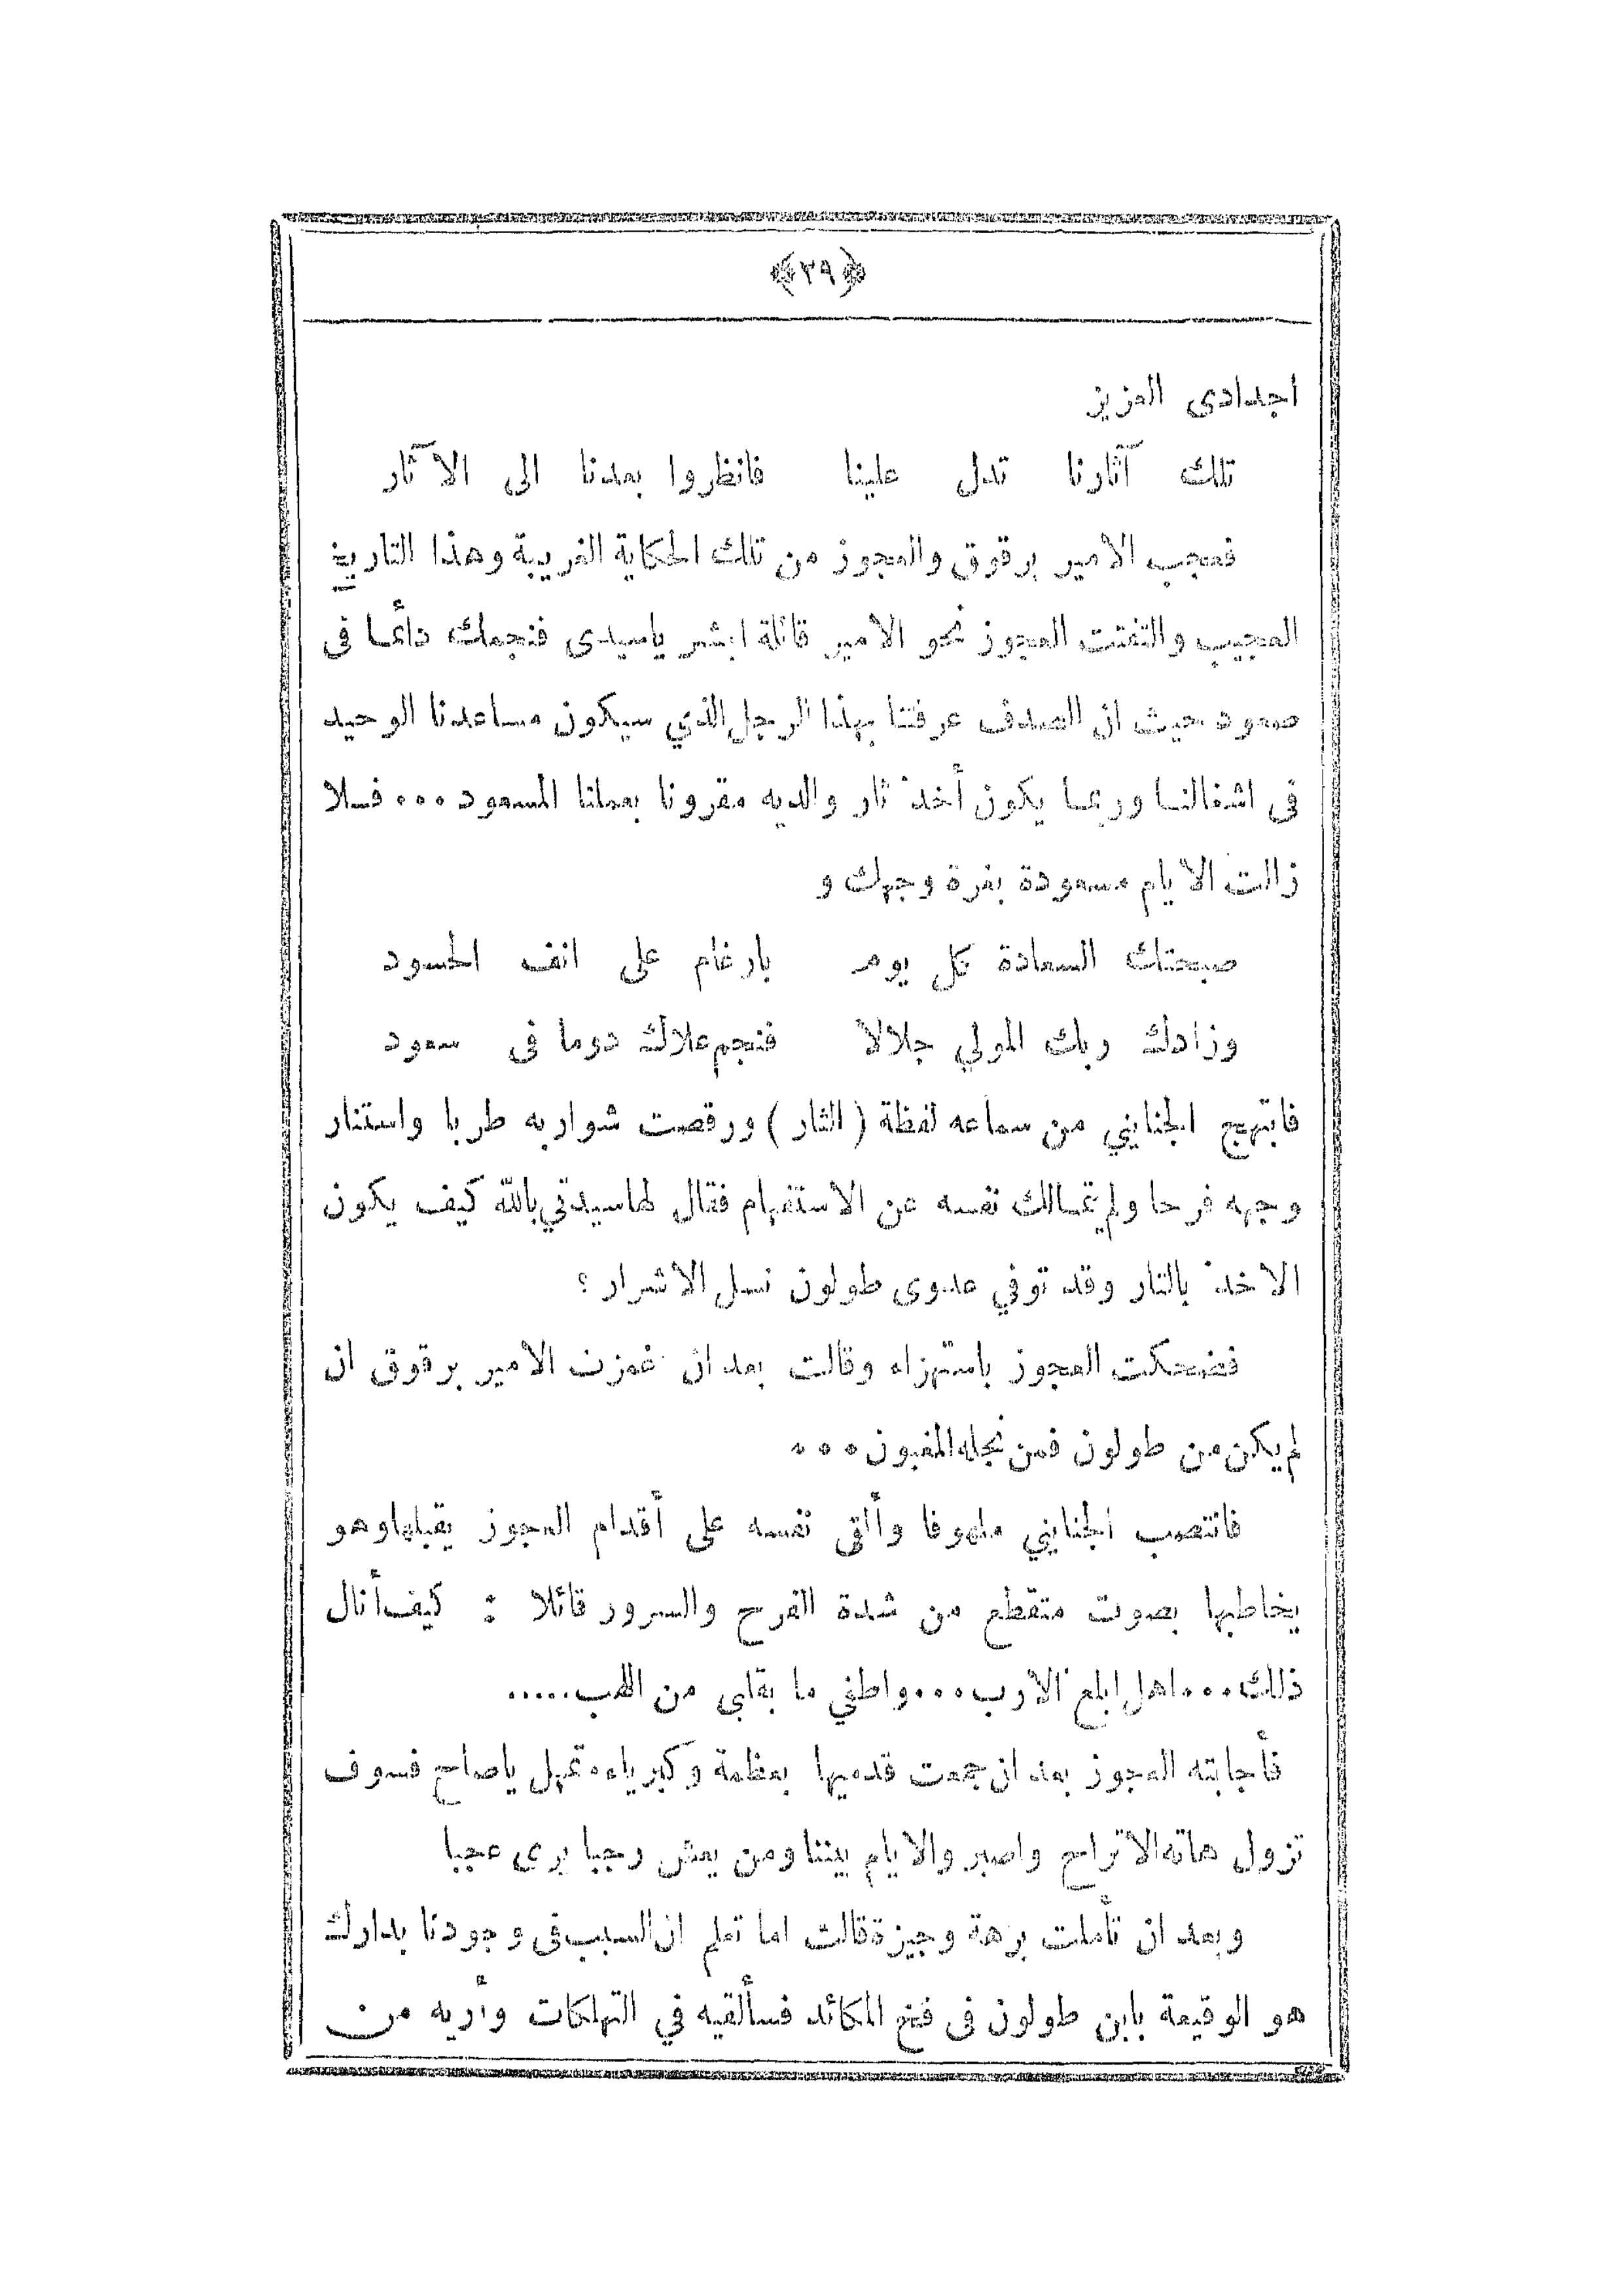 ﴿٢٩﴾
اجدادى العزيز
تلك آثارنا تدل علينا فانظروا بعدنا الى الآثار
فعجب الامير برقوق والعجوز من تلك الحكاية الغريبة وهذا التاريخ
العجيب والتفتت العجوز نحو الامير قائلة ابشر ياسيدى فنجمك دائما فى
صعود حيث ان الصدف عرفتنا بهذا الرجل الذي سيكون مساعدنا الوحيد
فى اشغالنا وربما يكون أخذ ثار والديه مقرونا بعملنا المسعود ٠٠٠ فلا
زالت الايام مسعودة بغرة وجهك و
صبحتك السعادة كل يوم بارغام على انف الحسود
وزادك ربك المولي جلالا فنجم علاك دوما فى سعود
فابتهج الجنايني من سماعه لفظة ( الثار ) ورقصت شواربه طربا واستنار
وجهه فرحا ولم يتمالك نفسه عن الاستفهام فقال لها سيدتي بالله كيف يكون
الاخذ بالثار وقد توفي عدوى طولون نسل الاشرار ؟
فضحكت العجوز باستهزاء وقالت بعد ان غمزت الامير برقوق ان
لم يكن من طولون فمن نجله المغبون ٠٠٠
فانتصب الجنايني ملهوفا وألقى نفسه على أقدام العجوز يقبلها وهو
يخاطبها بصوت متقطع من شدة الفرح والسرور قائلا : كيف أنال
ذلك ٠٠٠ اهل ابلغ الارب ٠٠٠ واطفي ما بقلبى من اللهب .....
فأجابته العجوز بعد ان جمعت قدميها بعظمة وكبرياء ٠ تمهل ياصاح فسوف
تزول هاته الاتراح واصبر والايام بيننا ومن يعش رجبا يرى عجبا
وبعد ان تأملت برهة وجيزة قالت اما تعلم ان السبب فى وجودنا بدارك
هو الوقيعة بابن طولون فى فخ المكائد فسألقيه في التهلكات وأريه من